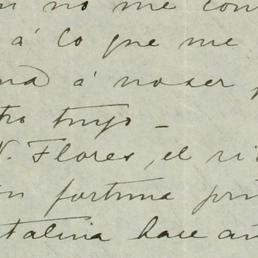 no me con
á lo que me
á no ser
tuyo —
V. Flores, el ri
fortuna pri
talina hace añ